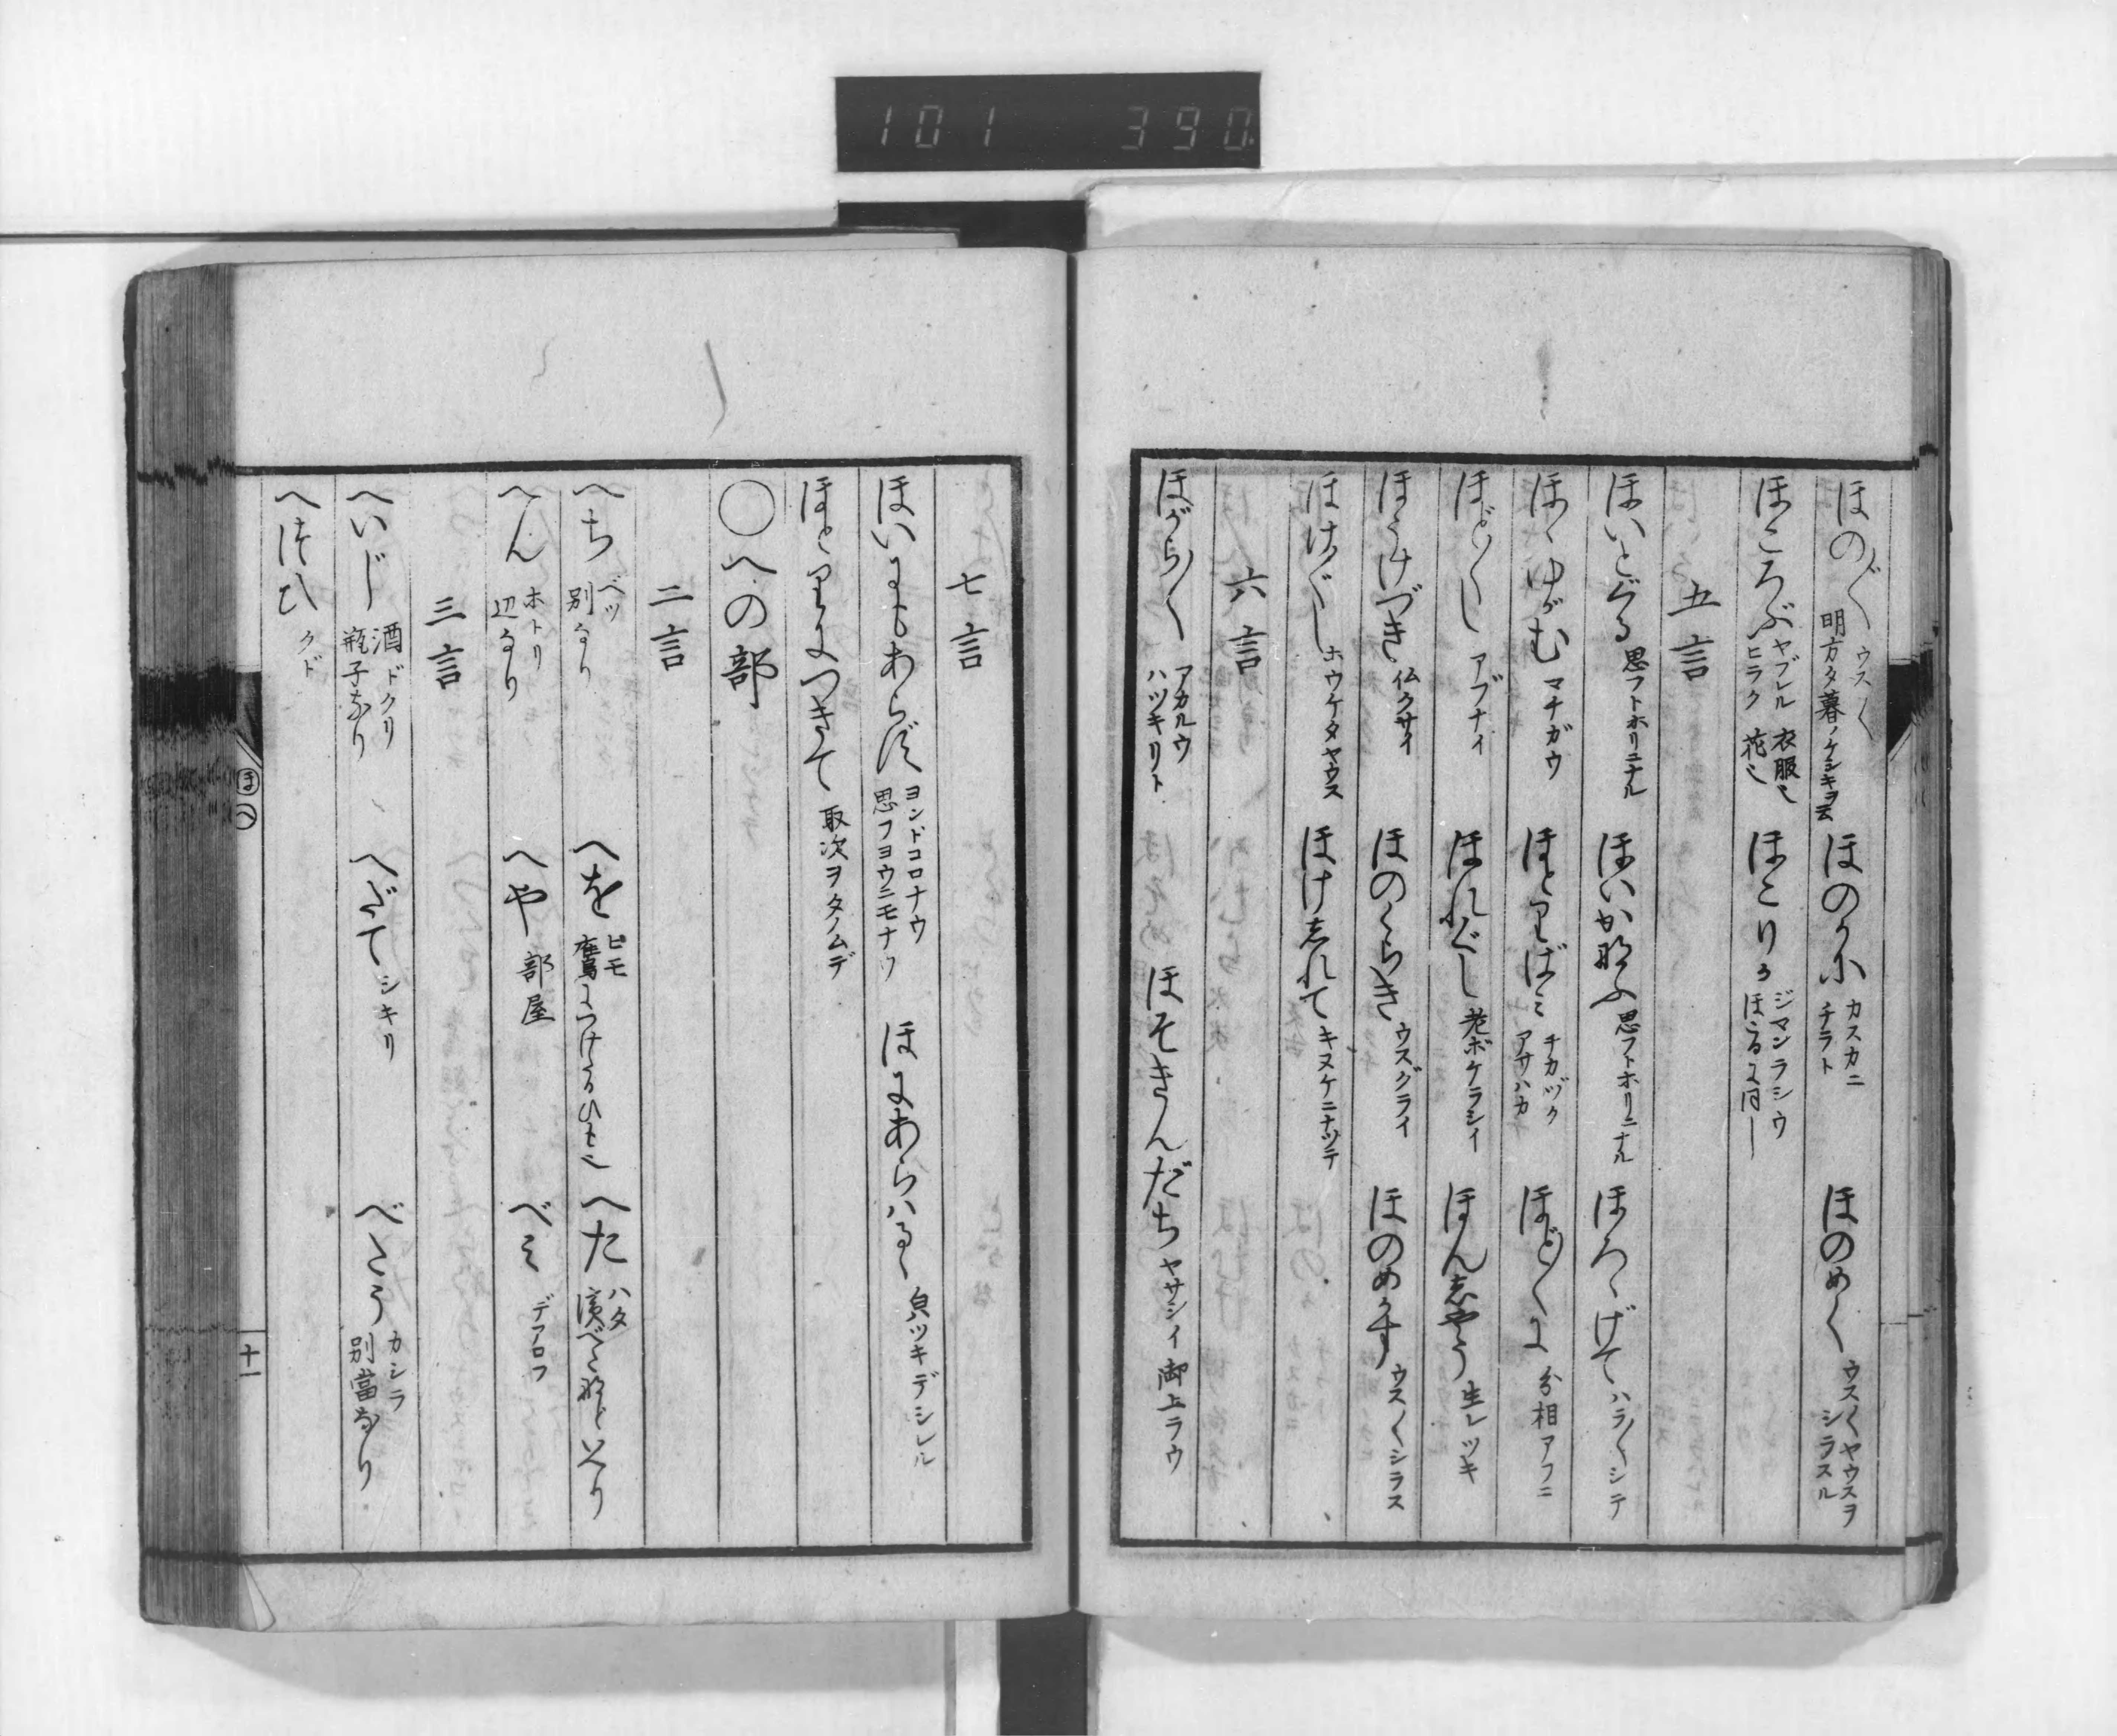 101 390
ほの〴〵 ウス〳〵 明方夕暮ノケシキヲ云 ほのかに カスカニ チラト ほのめく ウス〳〵ヤウスヲ シラスル
ほころぶ ヤブレル 衣服ニ ヒラク 花ニ ほこりか ジマンラシウ ほこるに同し
五言
ほいとぐる 思フトホリニナル ほいかなふ 思フトホリニナル ほろゝげて ハラ〳〵シテ
ほゝゆがむ マチガウ ほとりばミ チカヅク アサハカ ほど〳〵に 分相アフニ
ほど〳〵し アブナイ ほれ〴〵し 老ボケラシイ ほんしやう 生レツキ
ほうけづき 仏クサイ ほのくらき ウスグライ ほのめかす ウス〳〵シラス
ほけ〳〵し ホウケタヤウス ほけしれて キヌケニナツテ
六言
ほがら〳〵 アカルウ ハツキリト ほそきんだち ヤサシイ御上ラウ
七言
ほいにもあらず ヨンドコロナウ 思フヨウニモナウ ほにあらハるゝ 㒵ツキデシレル
ほとりにつきて 取次ヲタノムデ
〇への部
二言
へち ベツ 別なり へを ヒモ 鷹につけるひもニ へた ハタ 濱べたなどいへり
へん ホトリ 辺なり へや 部屋 べミ デアロフ
三言
へいじ 酒ドクリ 瓶子なり へだて シキリ べたう カシラ 別當なり
へつひ クド
ほ へ
十一